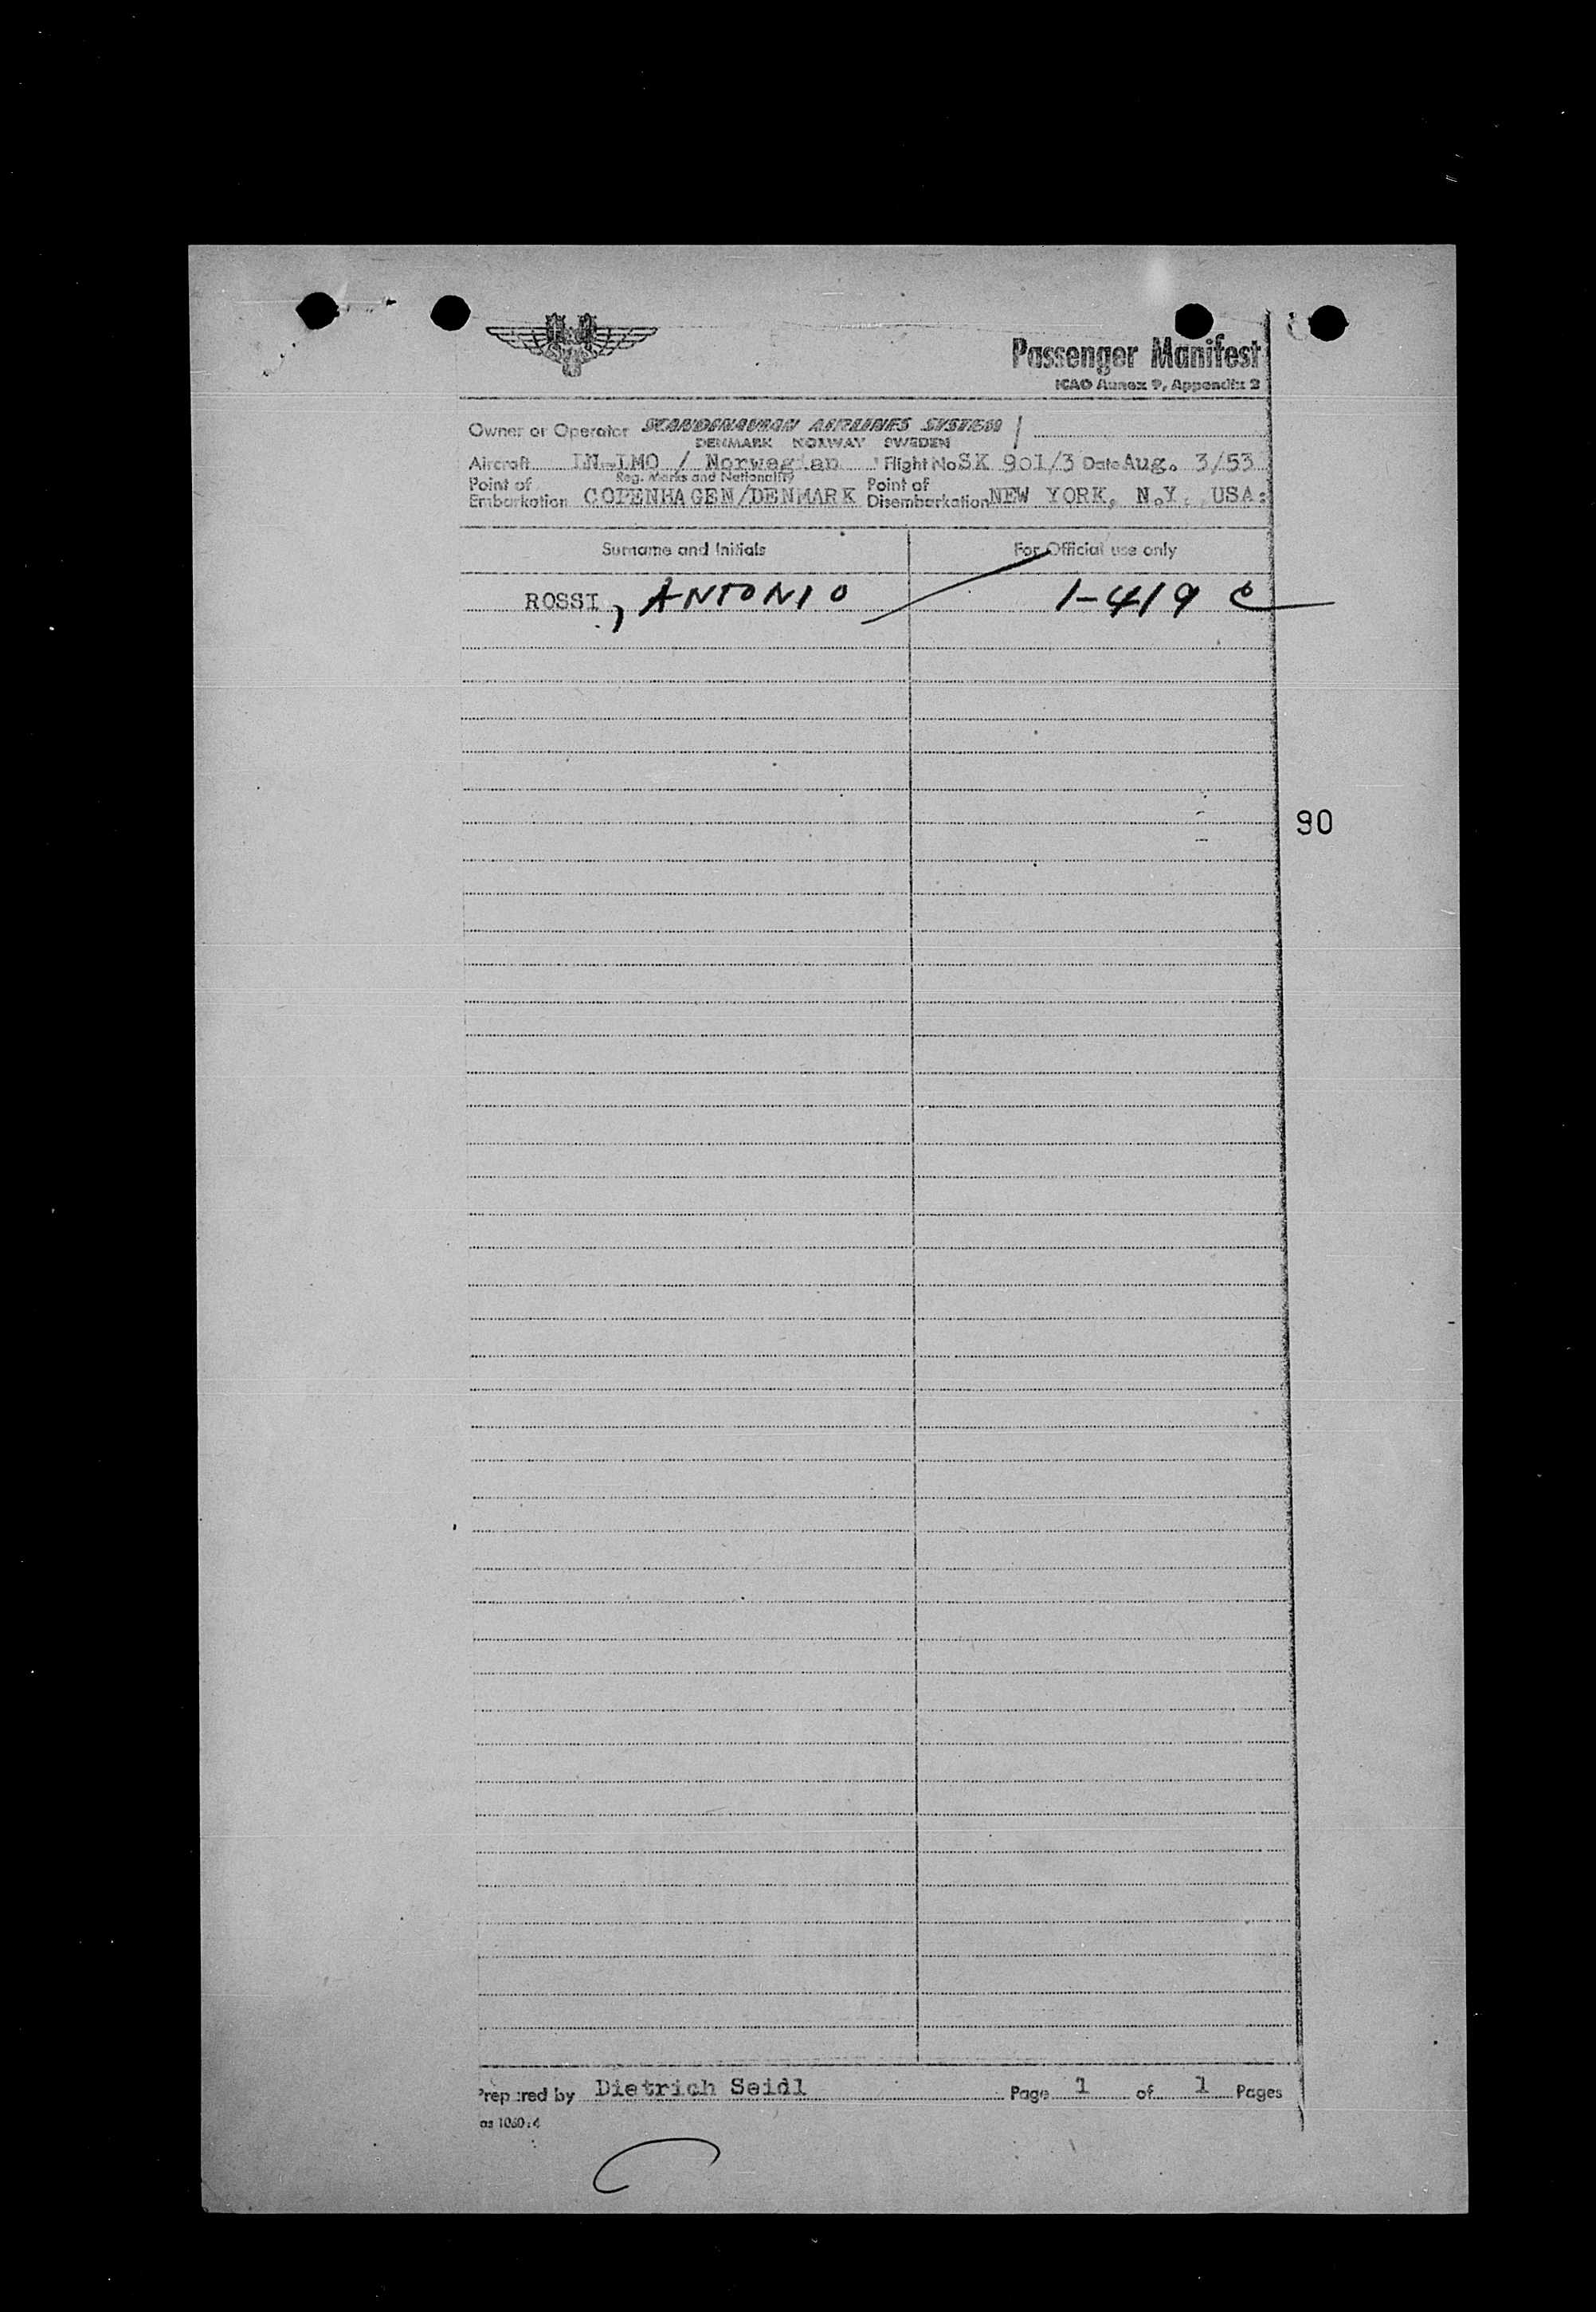 Passenger Manifest
ICAO Annex 9, Appendix 2
Owner or Operator SCANDINAVIAN AIRLINES SYSTEM
DENMARK NORWAY SWEDEN
Aircraft LN-LMO / Norwegian Flight No SK 901/3 Date Aug. 3/53
Reg. Marks and Nationality
Point of Embarkation COPENHAGEN/DENMARK Point of Disembarkation NEW YORK, N.Y. USA:
Surname and Initials For Official use only
ROSSI, ANTONIO 1-419 c
90
Prepared by Dietrich Seidl Page 1 of 1 Pages
as 1060:4